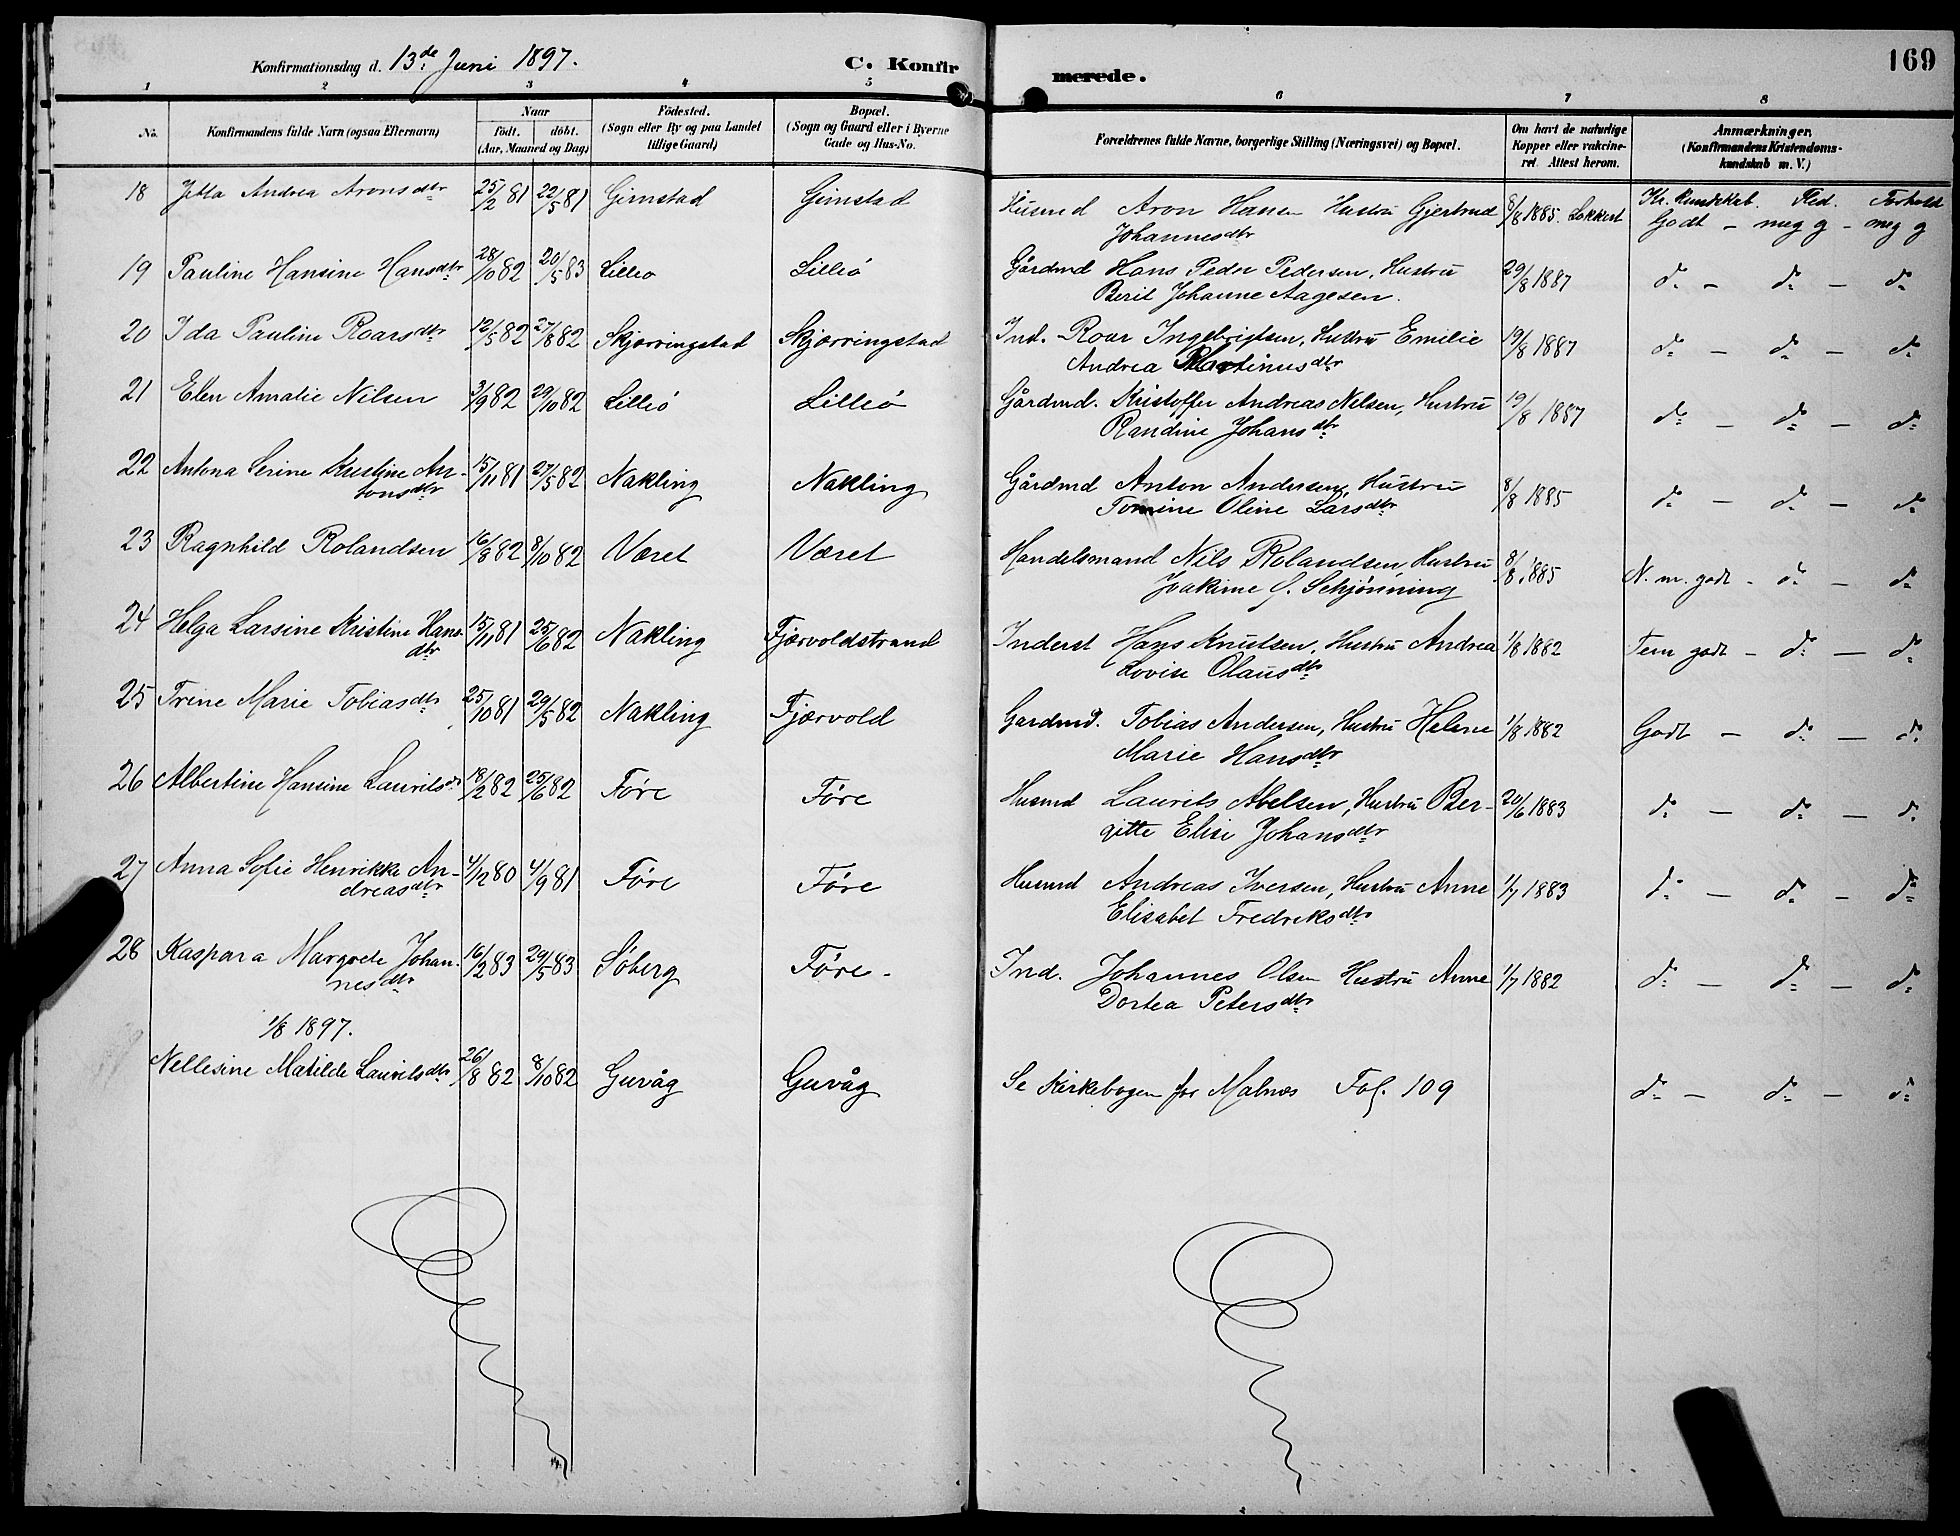 Konfirmationsdag d. 13de Juni 1897. C. Konfirmerede. 169
1 2 3 4 5 6 7 8
No. Konfirmandens fulde Navn (ogsaa Efternavn) Naar födt. döbt. (Aar, Maaned og Dag) Födested. (Sogn eller By og paa Landet tillige Gaard) Bopæl. (Sogn og Gaard eller i Byerne Gade og Hus-No. Forældrenes fulde Navne, borgerlige Stilling (Næringsvei) og Bopæl. Om havt de naturlige Kopper eller vakcineret. Attest herom. Anmærkninger, (Konfirmandens Kristendomskundskab m. V.)
Kr. Kundskab. Flid. Forhold
18 Jetta Andrea Aronsdtr 25/2 81 22/5 81 Gimstad Gimstad Husmd Aron Hansen Hustru Gjertrud 8/8 1885. Lokkert Godt - meg g - meg g
Johannesdtr
19 Pauline Hansine Hansdtr 28/10 82 20/5 83 Lilleö Lilleö Gårdmd Hans Peder Pedersen, Hustru 29/8 1887 do - do - do
Berit Johanne Aagesen.
20 Ida Pauline Roarsdtr 12/5 82 27/8 82 Skjørringstad Skjørringstad Ind. Roar Ingebrigtsen, Hustru Emilie 19/8 1887 do - do - do
Andrea Martinusdtr
21 Elen Amalie Nilsen 3/9 82 29/10 82 Lilleö Lilleö Gårdmd. Kristoffer Andreas Nilsen, Hustru 19/8 1887 do - do - do
Randine Johansdtr
22 Antona Serine Kristine An- 15/11 81 27/5 82 Nakling Nakling Gårdmd Anton Andersen, Hustru 8/8 1885 do - do - do
tonsdtr Tomine Oline Larsdtr
23 Ragnhild Rolandsen 16/8 82 8/10 82 Været Været Handelsmand Nils Rolandsen, Hustru 8/8 1885 N. m. godt - do - do
Joakime C. Schjønning
24 Helga Larsine Kristine Hans- 15/11 81 25/6 82 Nakling Fjærvoldstrand Inderst Hans Knutsen, Hustru Andrea 1/8 1882 Tem godt - do - do
dtr Lovise Olausdtr
25 Trine Marie Tobiasdtr 25/10 81 29/5 82 Nakling Fjærvold Gardmd. Tobias Andersen, Hustru Helene 1/8 1882 Godt - do - do
Marie Hansdtr
26 Albertine Hansine Lauritsdr 18/2 82 25/6 82 Føre Føre Husmd Laurits Abelsen, Hustru Ber- 20/6 1883 do - do - do
gitte Elise Johansdtr
27 Anna Sofie Henrikke An- 4/12 80 4/9 81 Føre Føre Husmd Andreas Iversen, Hustru Anne 1/7 1883 do - do - do
dreasdtr Elisabet Fredriksdtr
28 Kaspara Margrete Johan- 16/2 83 29/5 83 Søberg Føre - Ind. Johannes Olsen Hustru Anne 1/7 1882 do - do - do
nesdtr Dortea Petersdtr
1/8 1897.
Nellesine Matilde Lauritsdtr 26/8 82 8/10 82 Guvåg Guvåg Se Kirkebogen for Malnes Fol. 109 do - do - do